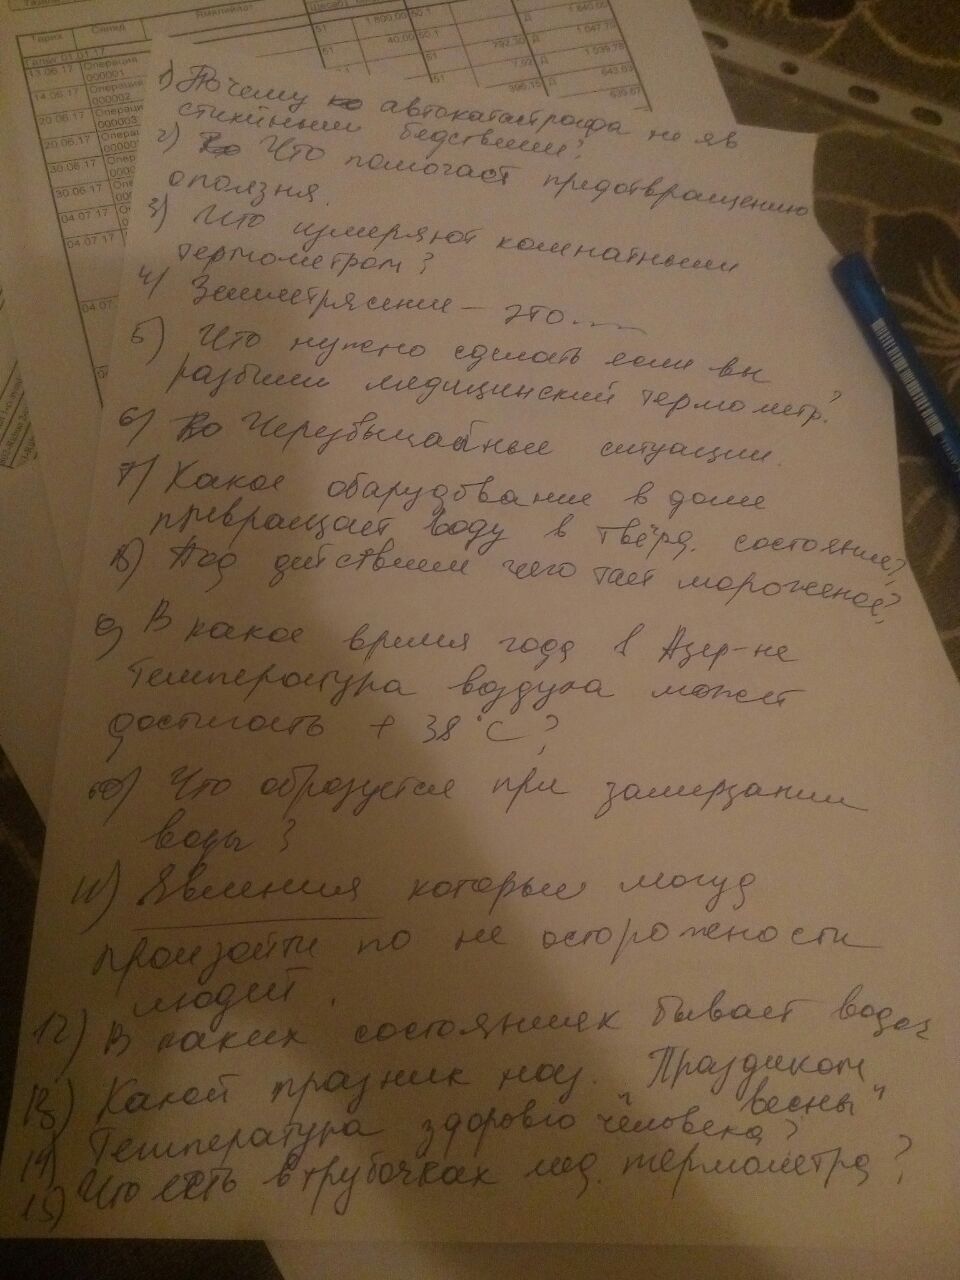 Тарих
Склад
13.06.17 Операция
000001
14.06.17 Операция
000002
20.06.17 Операци
000003
20.06.17 Опера
30.06.17 Опер
30.06.17
04.07.17
04.07.17
04.07
51 1 800,00 50.1 Д 1 840.00
51 40,00 50.1 Д 1 047.70
51 792,30 Д 1 039.78
7,92 Д 643.63
396,15
1) Почему автокатастрофа не яв
стихийным бедствием?
2) Что помогает предотвращению
оползня.
3) Что измеряют комнатным
термометром?
4) Землетрясение – это....
5) Что нужно сделать если вы
разбили медицинский термометр?
6) Черезвычайные ситуации.
7) Какое обарудование в доме
превращает воду в твёрд. состояние?
8) Под действием чего тает мороженое?
9) В какое время года в Азер-не
температура воздуха может
достигать + 38°С?
10) Что образуется при замерзании
воды?
11) Явления которые могуд
произойти по не осторожности
людей.
12) В каких состояниях бывает вода?
13) Какой празник наз. "Праздиком
весны"
14) Температура здорово человека?
15) Что есть в трубочках мед. термометра?